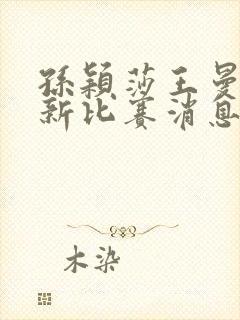 孫穎莎王曼
新比賽消息
木染